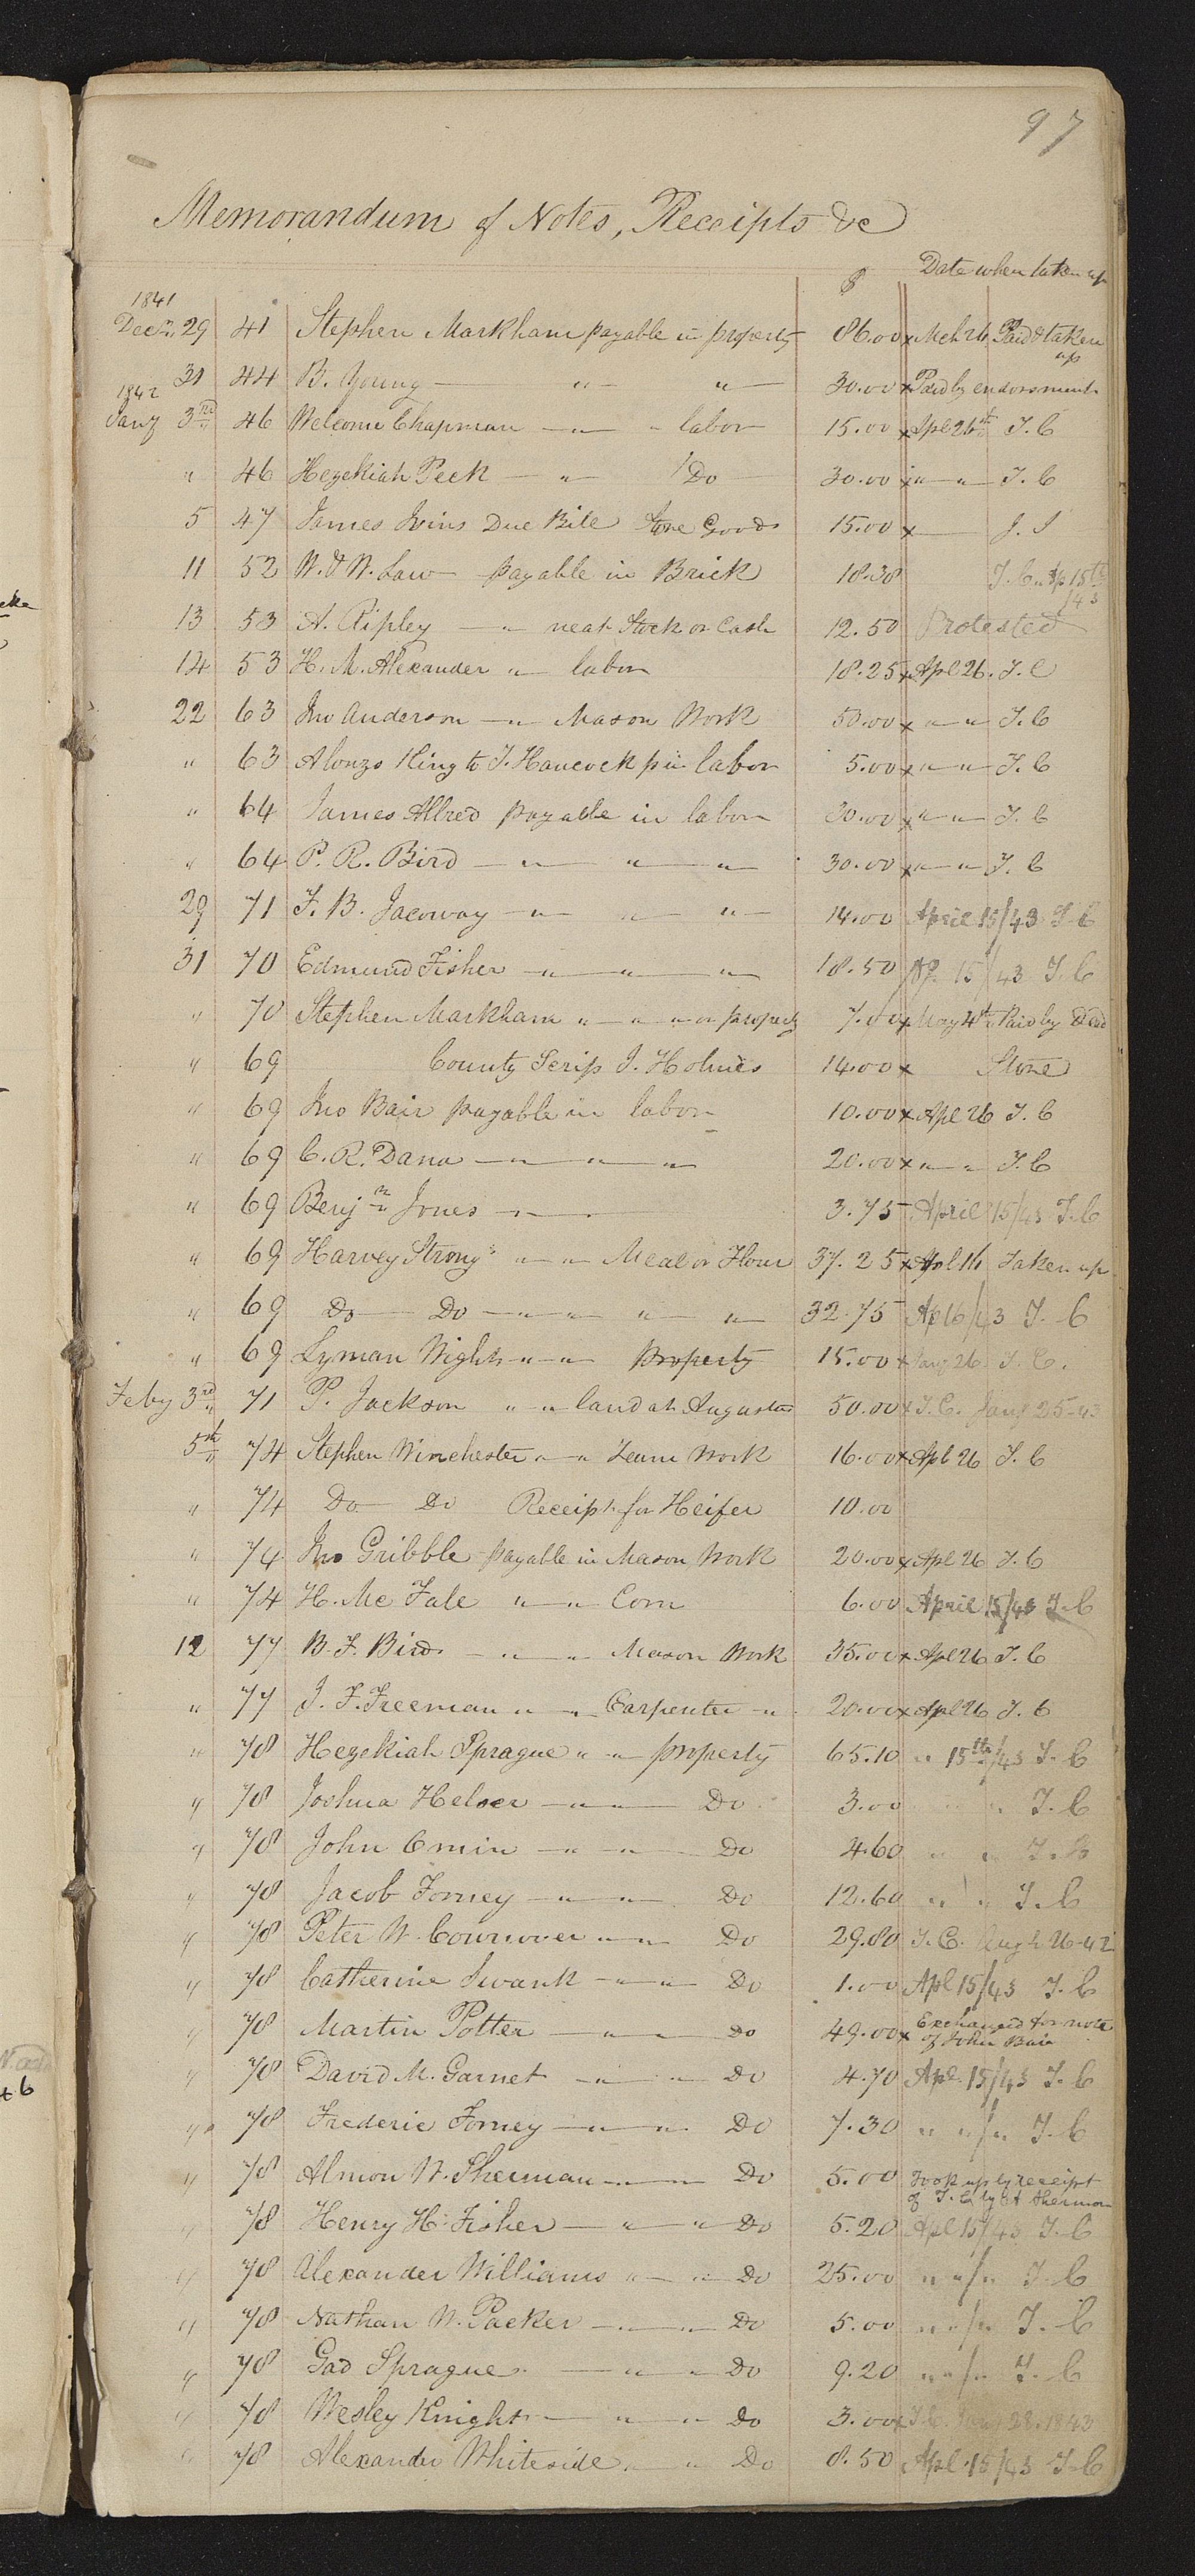 97
Memorandum of Notes, Receipts &c
$ Date when taken up
1841
Decr. 29 41 Stephen Markham payable in property 86.00 x Mch 26 Paid & taken up
31 44 B. Young — " — " — 30.00 x Paid by endorsment
1842
Jany 3rd 46 Welcome Chapman — " — " labor 15.00 x Apl 26th T. C
" 46 Hezekiah Peck — " — Do 30.00 x " — " — T. C
5 47 James Ivins Due Bill Store Goods 15.00 x — J. I
11 52 W. & W. Law — payable in Brick 18.38 T. C. Ap 15th /43
13 53 A. Ripley — " — neat Stock or Cash 12.50 Protested
14 53 H. M. Alexander " — labor 18.25 x Apl 26. T. C
22 63 Jno Anderson — " — Mason Work 50.00 x " — " — T. C
" 63 Alonzo King to T. Hancock p in labor 5.00 x " — " — T. C
" 64 James Allred payable in labor 30.00 x " — " — T. C
" 64 P. R. Bird — " — " — " — 30.00 x " — " — T. C
29 71 F. B. Jacoway — " — " — " — 14.00 April 15/43 T. C
31 70 Edmund Fisher — " — " — " — 18.50 Ap. 15/43 T. C
" 70 Stephen Markham " — " — " or property 7.00 x May 4th Paid by Deed
" 69 County Scrip J. Holmes 14.00 x Stone
" 69 Jno Bair payable in labor 10.00 x Apl 26 T. C
" 69 C. R. Dana — " — " — " 20.00 x " — " T. C
" 69 Benjn Jones — " — " 3.75 April 15/43 T. C
" 69 Harvey Strong " — " — Meal or Flour 37.25 x Apl 16 Taken up
" 69 Do — Do — " — " — " — " — 32.75 Ap 16/43 T. C
" 69 Lyman Wight " — " — property 15.00 x Jany 26 T. C.
Feby 3rd 71 P. Jackson " — " — land at Augusta 50.00 x T. C. Jany 25-43
5th 74 Stephen Winchester " — " Team Work 16.00 x Apl 26 T. C
" 74 Do — Do Receipt for Heifer 10.00
" 74 Jno Gribble payable in Mason Work 20.00 x Apl 26 T. C
" 74 H. Mc Fale " — " Corn 6.00 April 15/43 T. C
12 77 B. F. Bird — " — " Mason Work 35.00 x Apl 26 T. C
" 77 J. F. Freeman " — " Carpenter — " 20.00 x Apl 26 T. C
" 78 Hezekiah Sprague " — " property 65.10 " 15th/43 T. C
" 78 Joshua Helser — " — " — Do 3.00 " " T. C
" 78 John — " — " — Do 4.60 " " T. C
" 78 Jacob Forney — " — " Do 12.60 " " T. C
" 78 Peter W. Cownover " — " Do 29.80 T. C. 26-42
" 78 Catherine Swank — " — " Do 1.00 Apl 15/43 T. C
" 78 Martin Potter — " — " Do 49.00 x Exchanged for note of John Bair
" 78 David M. Garnet — " — " Do 4.70 Apl. 15/43 T. C
" 78 Frederic Forney — " — " Do 7.30 " " / " T. C
" 78 Almon W. Sherman — " — Do 5.00 Took up by receipt of T. C by A Sherman
" 78 Henry H. Fisher — " — " Do 5.20 Apl 15/43 T. C
" 78 Alexander Williams " — " Do 25.00 " " / " T. C
" 78 Nathan W. Packer — " — " Do 5.00 " " / " T. C
" 78 Gad Sprague — " — " Do 9.20 " " / " T. C
" 78 Wesley Knight — " — " Do 3.00 x T. C. 28. 1843
" 78 Alexander Whiteside " — " Do 8.50 Apl. 15/43 T. C